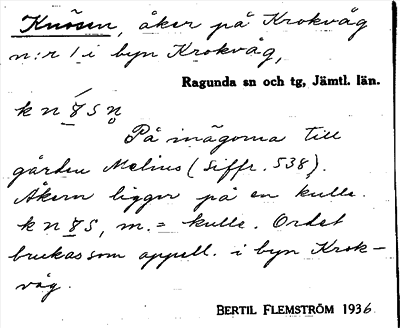 Knösen, åker på Krokvåg
n:r 1 i byn Krokvåg,
Ragunda sn och tg, Jämtl. län.
På inägorna till
gården Melins (Siffr. 538).
Åkern ligger på en kulle.
m. = kulle. Ordet
brukas som appell. i byn Krok-
våg.
BERTIL FLEMSTRÖM 1936